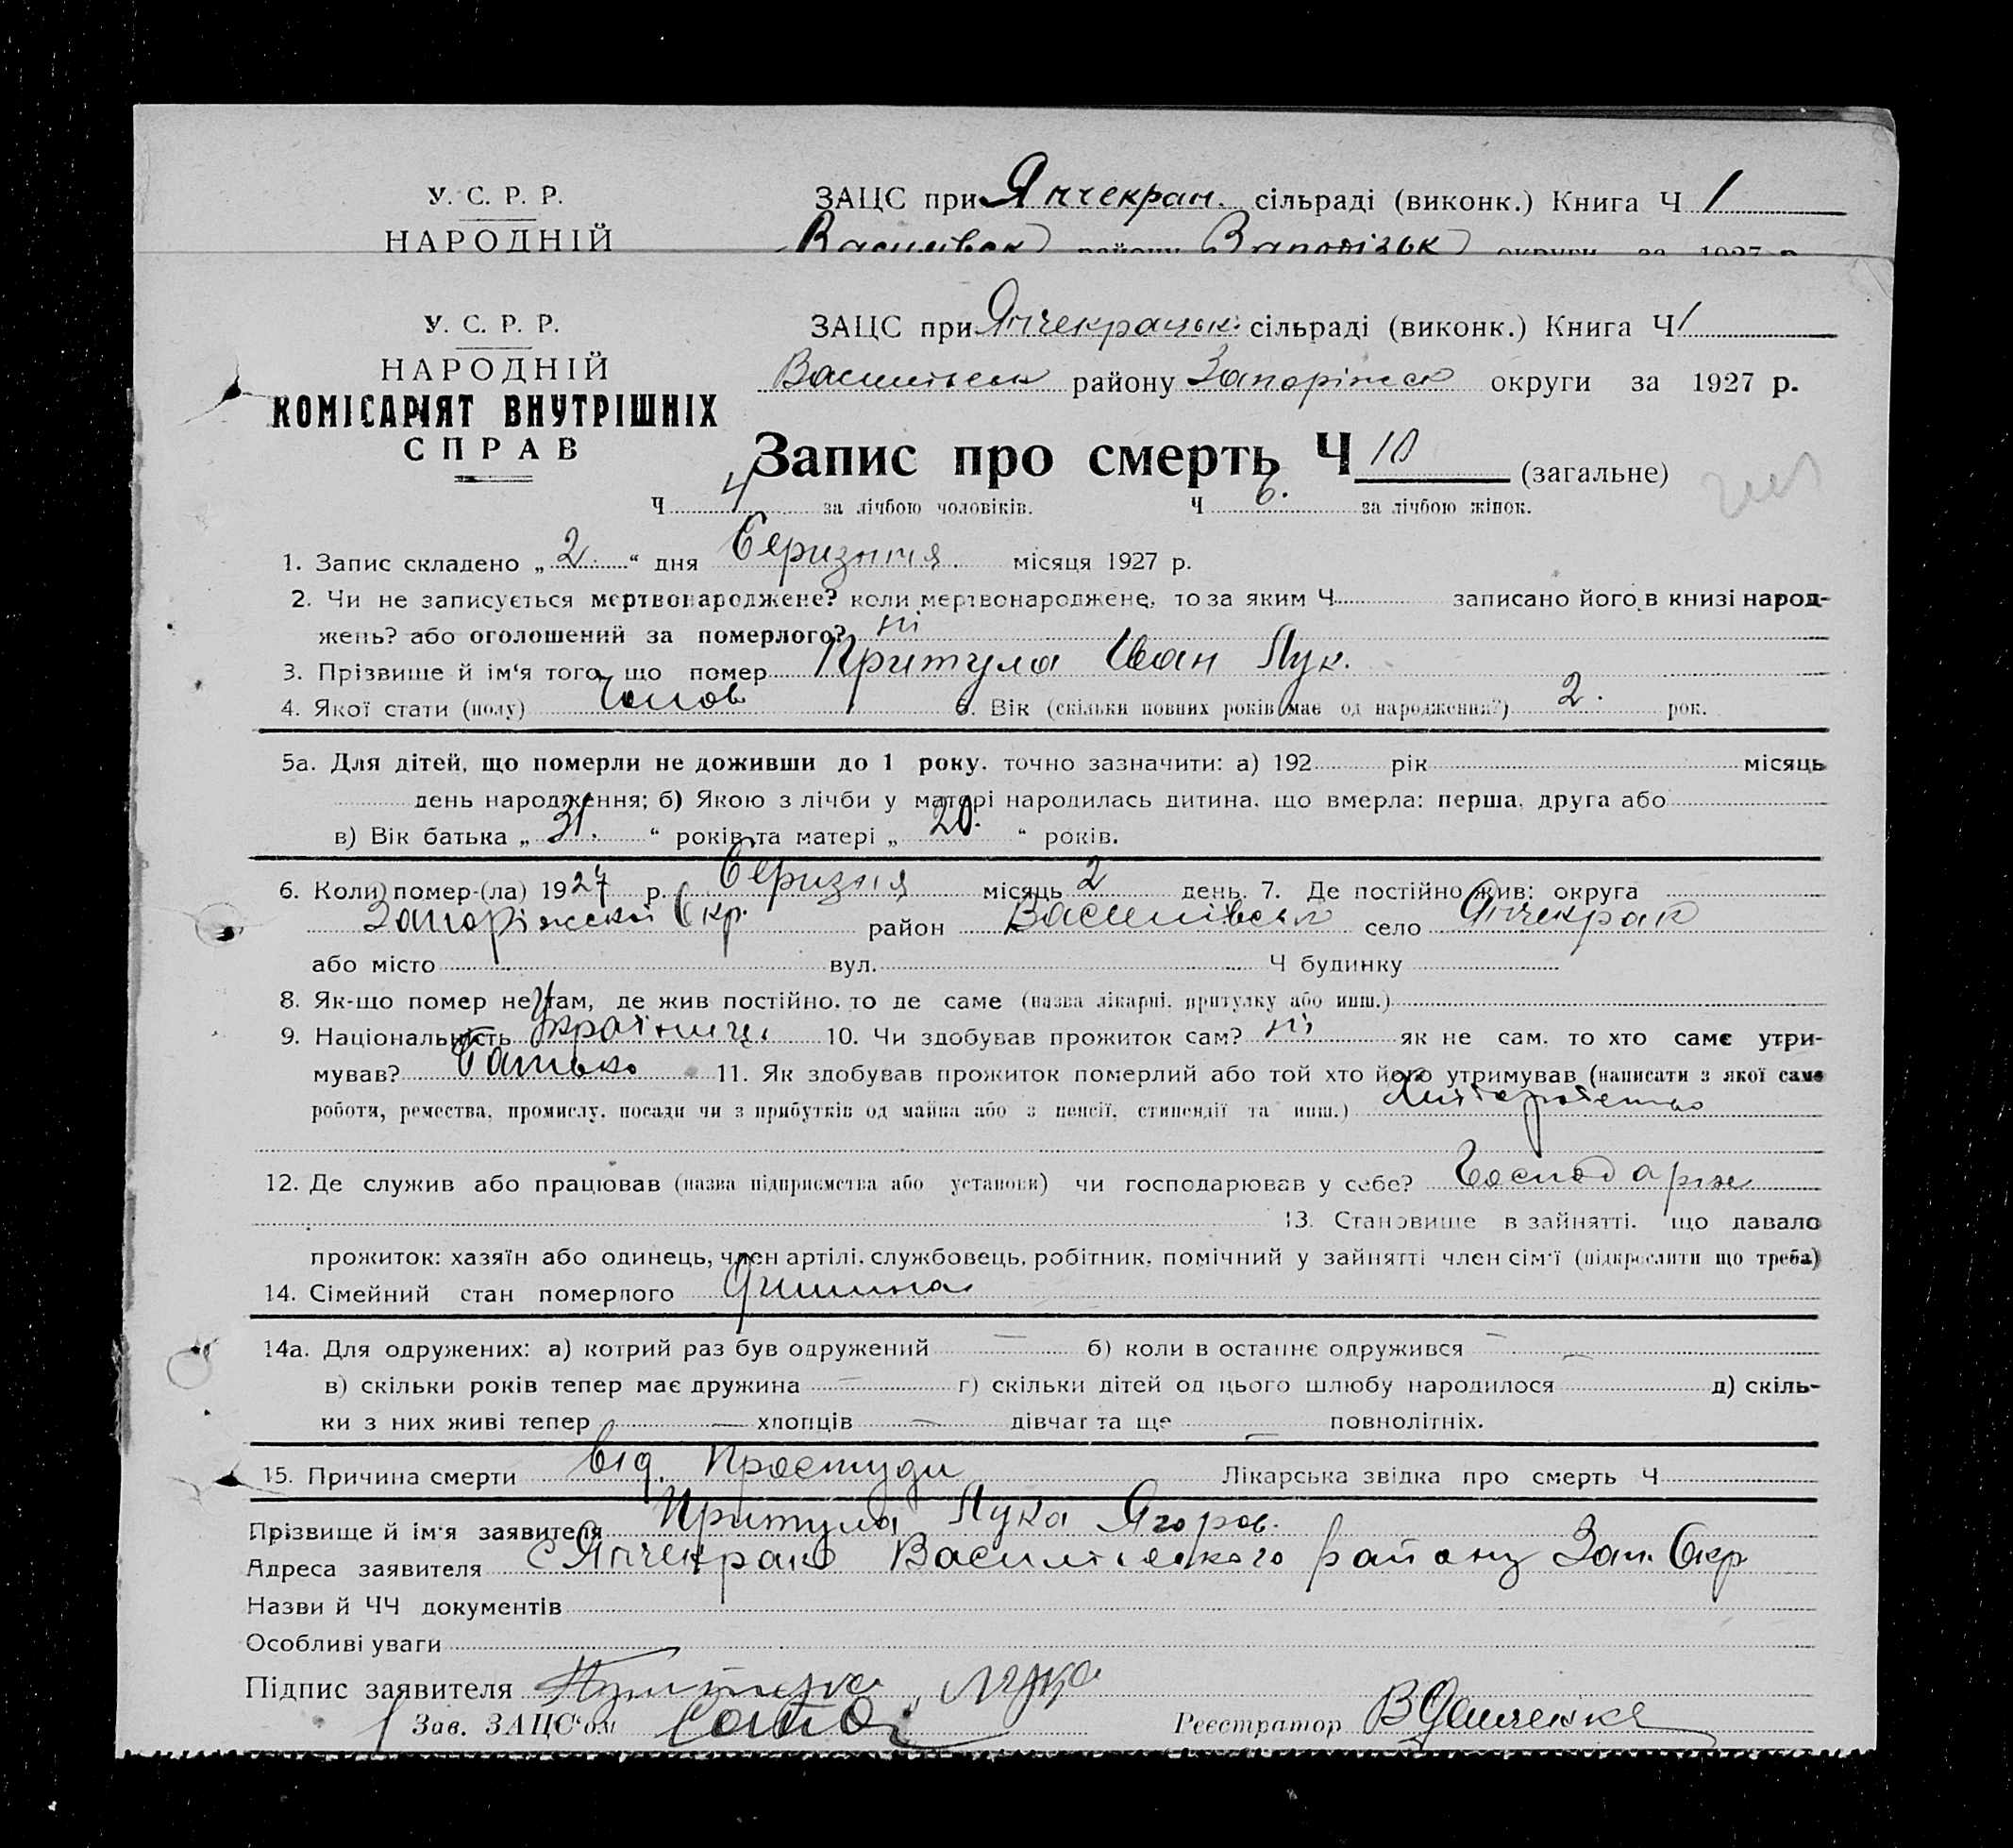 У. С. Р. Р.
НАРОДНІЙ
ЗАЦС при Янчекрак. сільраді (виконк.) Книга Ч 1
Василівськ району Запорізьк округи за 1927 р.
У. С. Р. Р.
НАРОДНІЙ
КОМІСАРІЯТ ВНУТРІШНІХ
СПРАВ
ЗАЦС при Янчекрацьк. сільраді (виконк.) Книга Ч 1
району округи за 1927 р.
Запис про смерть Ч 10 (загальне)
Ч 4 за лічбою чоловіків. Ч 6. за лічбою жінок.
1. Запис складено „ 2. “ дня місяця 1927 р.
2. Чи не записується мертвонароджене? коли мертвонароджене, то за яким Ч записано його в книзі народ-
жень? або оголошений за померлого? ні
3. Прізвише й ім‘я того, що помер Притула Іван Лук.
4. Якої стати (полу) Чолов 5. Вік (скільки повних років має од народження?) 2. рок.
5а. Для дітей, що померли не доживши до 1 року, точно зазначити: а) 192 рік місяць
день народження; б) Якою з лічби у матері народилась дитина, що вмерла: перша, друга або
в) Вік батька „ 31. “ років та матері „ 20. “ років.
6. Коли помер-(ла) 1927 р. місяць 2 день. 7. Де постійно жив: округа
Окр. район село Янчекрак
або місто вул. Ч будинку
8. Як-що помер не там, де жив постійно, то де саме (назва лікарні, притулку або инш.)
9. Національність 10. Чи здобував прожиток сам? ні як не сам, то хто саме утри-
мував? Батько 11. Як здобував прожиток померлий або той хто його утримував (написати з якої саме
роботи, ремества, промислу, посади чи з прибутків од майна або з пенсії, стипендії та инш.)
12. Де служив або працював (назва підприємства або установи) чи господарював у себе?
13. Становище в зайнятті, що давало
прожиток: хазяїн або одинець, член артілі, службовець, робітник, помічний у зайнятті член сім‘ї (підкреслити що треба)
14. Сімейний стан померлого
14а. Для одружених: а) котрий раз був одружений — б) коли в останнє одружився —
в) скільки років тепер має дружина — г) скільки дітей од цього шлюбу народилося — д) скіль-
ки з них живі тепер — хлопців — дівчат та ще — повнолітніх.
15. Причина смерти від. Простуди Лікарська звідка про смерть Ч
Прізвище й ім‘я заявителя Притула Лука Ягоров.
Адреса заявителя с Янчекрак району Зап. Окр
Назви й ЧЧ документів
Особливі уваги
Підпис заявителя Лука
Зав. ЗАЦС‘ом Реєстратор